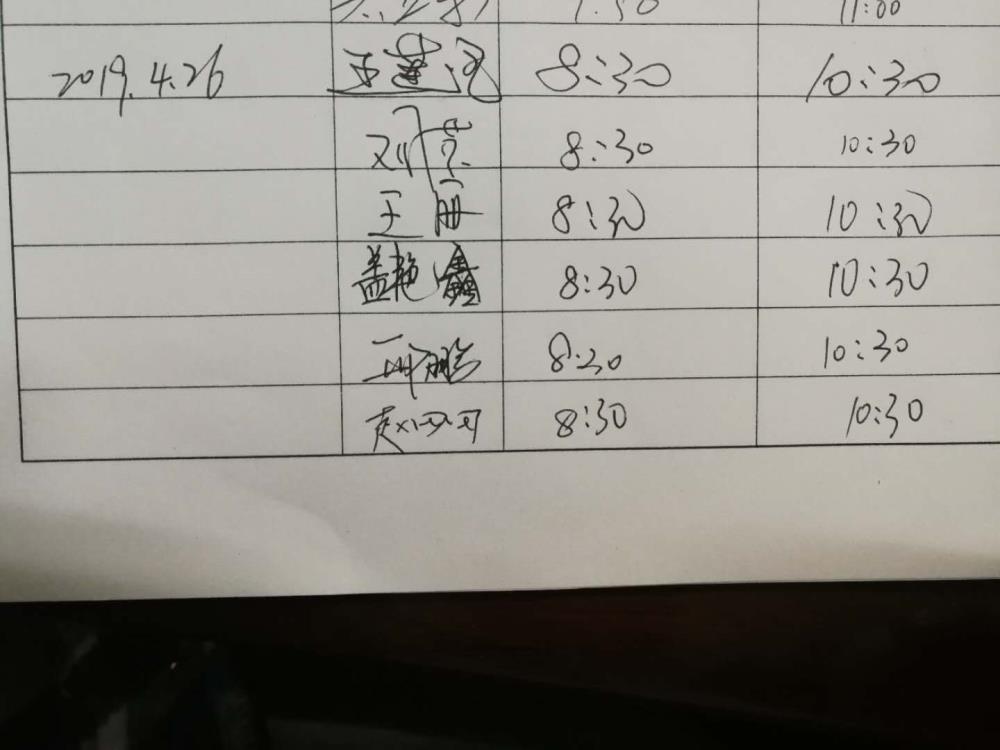 11:00
2019.4.26 8:30 10:30
刘芸 8:30 10:30
王丽 8:30 10:30
盖艳鑫 8:30 10:30
8:30 10:30
赵 8:30 10:30